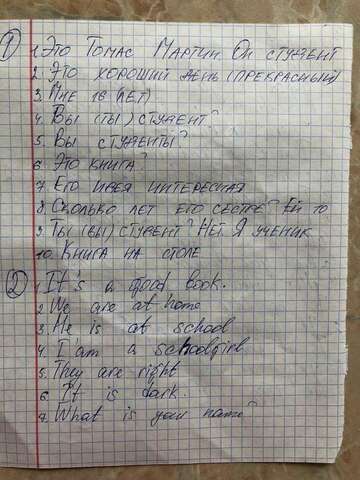 ① 1. Это Томас Мартин Он студент
2. Это хороший день (прекрасный)
3. Мне 18 (лет)
4. Вы (ты) студент?
5. Вы студенты?
6. Это книга?
7. Его идея интересная
8. Сколько лет его сестре? Ей 10
9. Ты (вы) студент? Нет. Я ученик
10. Книга на столе
② 1. It's a good book.
2. We are at home
3. He is at school
4. I am a schoolgirl
5. They are right
6. It is dark.
7. What is your name?